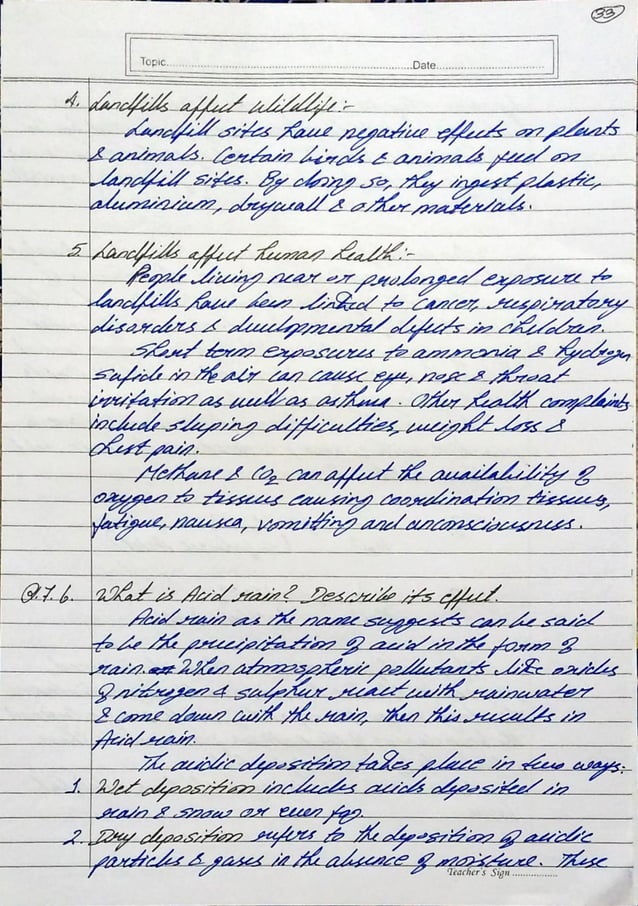 33
Topic.......................Date.......................
4. Landfills affect wildlife:-
Landfill sites have negative effects on plants
& animals. Certain birds & animals feed on
landfill sites. By doing so, they ingest plastic,
aluminium, drywall & other materials.
5. Landfills affect human health:-
People living near or prolonged exposure to
landfills have been linked to cancer, respiratory
disorders & developmental defects in children.
Short term exposures to ammonia & hydrogen
sufide in the air can cause eye, nose & throat
irritation as well as asthma. Other health complaints
include sleeping difficulties, weight loss &
chest pain.
Methane & CO₂ can affect the availability of
oxygen to tissues causing coordination tissues,
fatigue, nausea, vomitting and unconsciousness.
Q.7.6. What is Acid rain? Describe its effect.
Acid rain as the name suggests can be said
to be the precipitation of acid in the form of
rain. When atmospheric pollutants like oxides
of nitrogen & sulphur react with rainwater
& come down with the rain, then this results in
Acid rain.
The acidic deposition takes place in two ways:
1. Wet deposition includes acids deposited in
rain & snow or even fog.
2. Dry deposition refers to the deposition of acidic
particles & gases in the absence of moisture. These
Teacher's Sign .................